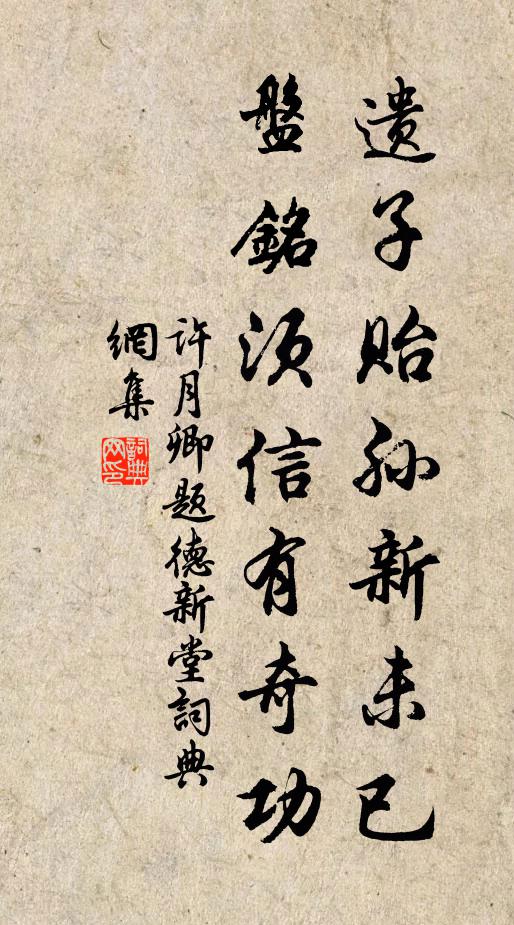 遗子贻孙新未已
盤銘須信有奇功
許月卿题德新堂詞典
網集
詞典
网印